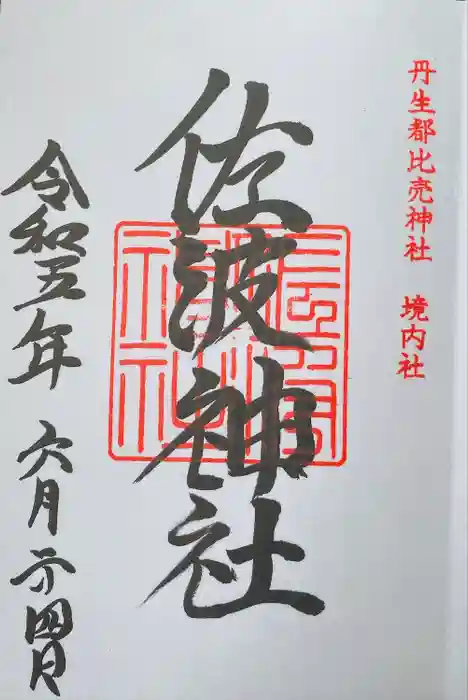 丹生都比売神社 境内社
佐波神社
令和五年 六月二十四日